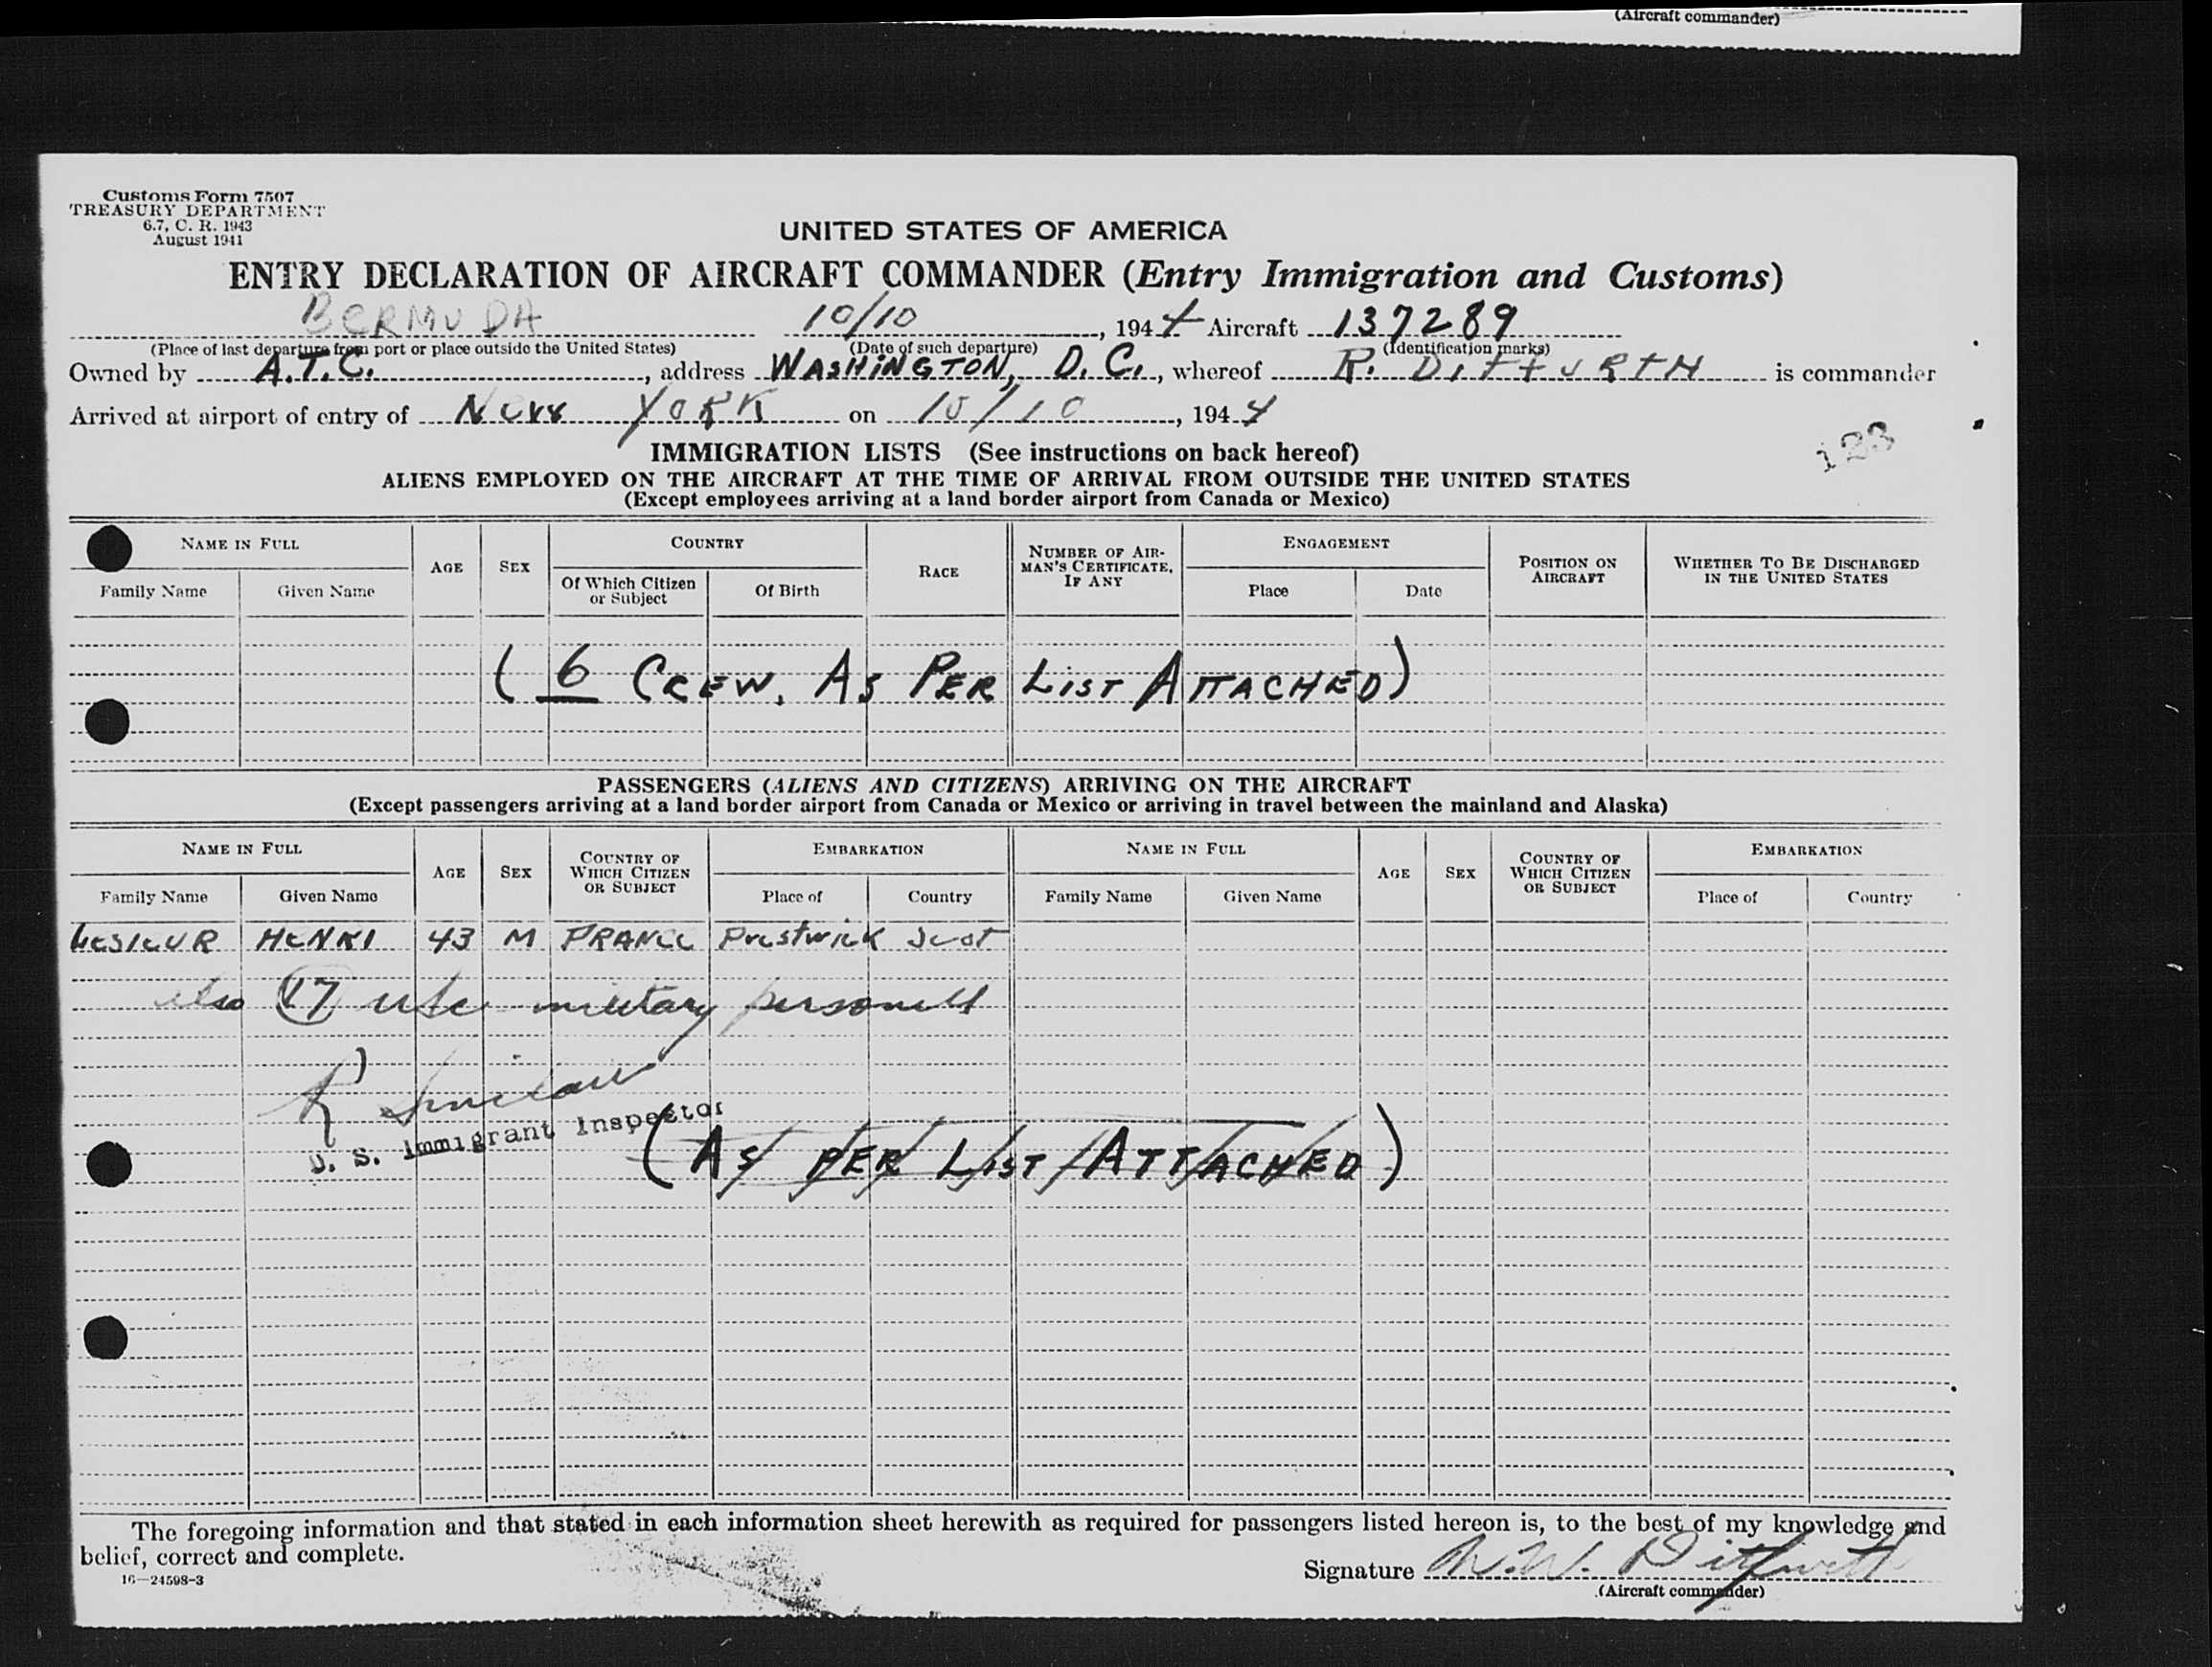 (Aircraft commander)
Customs Form 7507
TREASURY DEPARTMENT
6.7, C. R. 1943
August 1941
UNITED STATES OF AMERICA
ENTRY DECLARATION OF AIRCRAFT COMMANDER (Entry Immigration and Customs)
BERMUDA 10/10, 1944 Aircraft 137289
(Place of last departure from port or place outside the United States) (Date of such departure) (Identification marks)
Owned by A.T.C., address WASHINGTON, D.C., whereof R. DITTURTH is commander
Arrived at airport of entry of NEW YORK on 10/10, 1944
123
IMMIGRATION LISTS (See instructions on back hereof)
ALIENS EMPLOYED ON THE AIRCRAFT AT THE TIME OF ARRIVAL FROM OUTSIDE THE UNITED STATES
(Except employees arriving at a land border airport from Canada or Mexico)
NAME IN FULL AGE SEX COUNTRY RACE NUMBER OF AIRMAN'S CERTIFICATE, IF ANY ENGAGEMENT POSITION ON AIRCRAFT WHETHER TO BE DISCHARGED IN THE UNITED STATES
Family Name Given Name Of Which Citizen or Subject Of Birth Place Date
(6 CREW, AS PER LIST ATTACHED)
PASSENGERS (ALIENS AND CITIZENS) ARRIVING ON THE AIRCRAFT
(Except passengers arriving at a land border airport from Canada or Mexico or arriving in travel between the mainland and Alaska)
NAME IN FULL AGE SEX COUNTRY OF WHICH CITIZEN OR SUBJECT EMBARKATION NAME IN FULL AGE SEX COUNTRY OF WHICH CITIZEN OR SUBJECT EMBARKATION
Family Name Given Name Place of Country Family Name Given Name Place of Country
LESIEUR HENRI 43 M FRANCE Prestwick Scot
also 17 military personell
R Sinclair
U. S. Immigrant Inspector
(AS PER LIST ATTACHED)
The foregoing information and that stated in each information sheet herewith as required for passengers listed hereon is, to the best of my knowledge and
belief, correct and complete.
16—24598-3
Signature
(Aircraft commander)